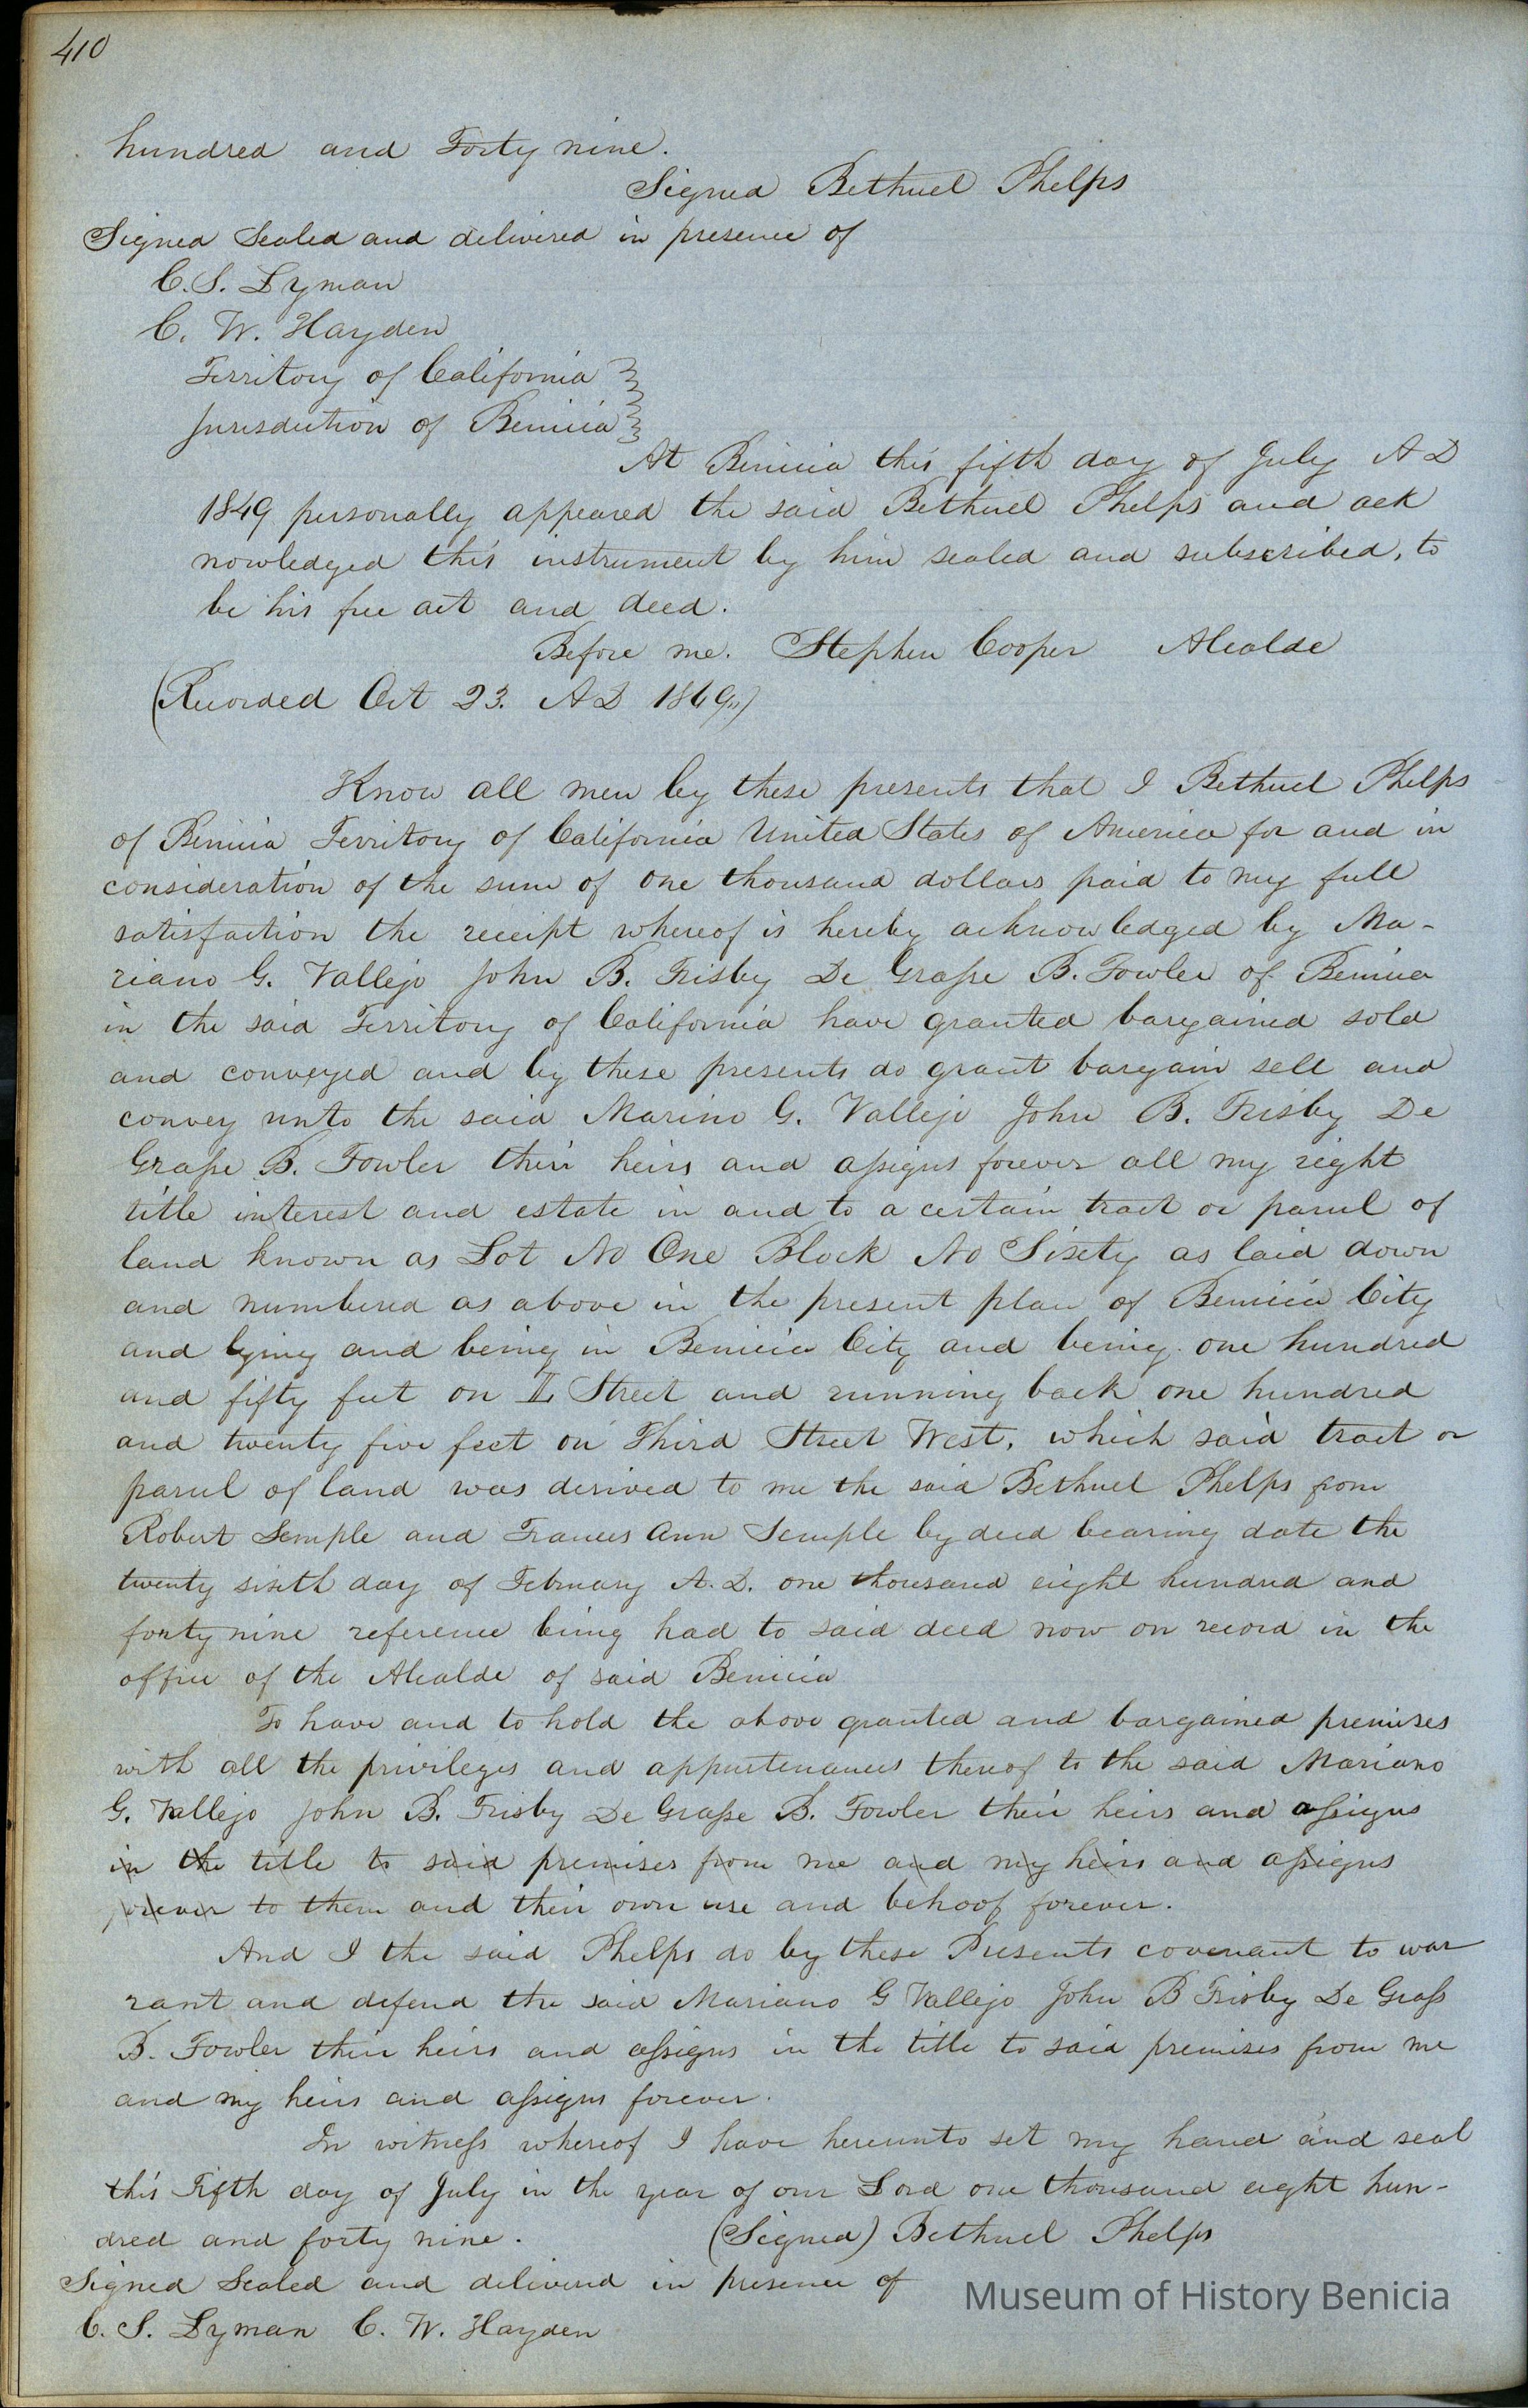 410
hundred and Forty nine.
Signed Bethuel Phelps
Signed Sealed and delivered in presence of
C. S. Lyman
C. W. Hayden
Territory of California
Jurisdiction of Benicia
At Benicia this fifth day of July A D
1849 personally appeared the said Bethuel Phelps and ack
nowledged this instrument by him sealed and subscribed, to
be his free act and deed.
Before me. Stephen Cooper Alcalde
(Recorded Oct 23. A D 1849")
Know all men by these presents that I Bethuel Phelps
of Benicia Territory of California United States of America for and in
consideration of the sum of one thousand dollars paid to my full
satisfaction the receipt whereof is hereby acknowledged by Ma-
riano G. Vallejo John B. Frisby De Grasse B. Fowler of Benicia
in the said Territory of California have granted bargained sold
and conveyed and by these presents do grant bargain sell and
convey unto the said Marino G. Vallejo John B. Frisby De
Grasse B. Fowler their heirs and assigns forever all my right
title interest and estate in and to a certain tract or parcel of
land known as Lot No One Block No Sixty as laid down
and numbered as above in the present plan of Benicia City
and lying and being in Benicia City and being one hundred
and fifty feet on Street and running back one hundred
and twenty five feet on Third Street West, which said tract or
parcel of land was derived to me the said Bethuel Phelps from
Robert Semple and Frances Ann Semple by deed bearing date the
twenty sixth day of February A. D. one thousand eight hundred and
forty nine reference being had to said deed now on record in the
office of the Alcalde of said Benicia
To have and to hold the above granted and bargained premises
with all the privileges and appurtenances thereof to the said Mariano
G. Vallejo John B. Frisby De Grasse B. Fowler their heirs and assigns
in the title to said premises from me and my heirs and assigns
forever to them and their own use and behoof forever.
And I the said Phelps do by these Presents covenant to war
rant and defend the said Mariano G Vallejo John B Frisby De Grass
B. Fowler their heirs and assigns in the title to said premises from me
and my heirs and assigns forever.
In witness whereof I have hereunto set my hand and seal
this Fifth day of July in the year of our Lord one thousand eight hun-
dred and forty nine. (Signed) Bethuel Phelps
Signed Sealed and delivered in presence of
C. S. Lyman C. W. Hayden
Museum of History Benicia